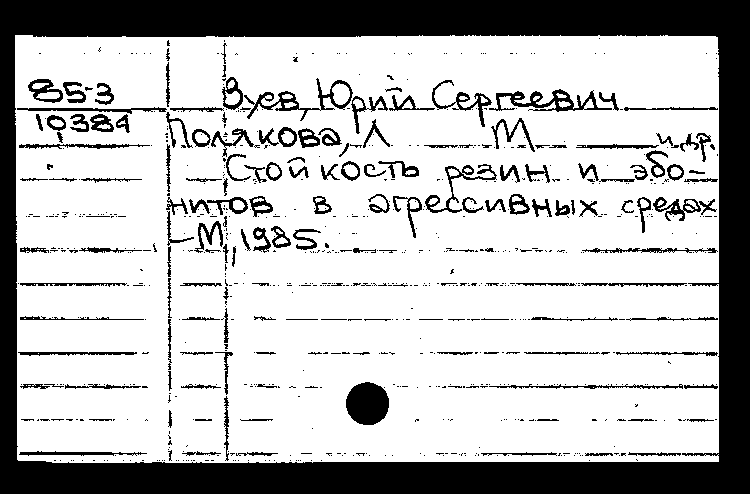 85-3
Зуев, Юрий Сергеевич.
10384
Полякова, Л М и др.
Стойкость резин и эбо-
нитов в агрессивных средах
-М, 1985.